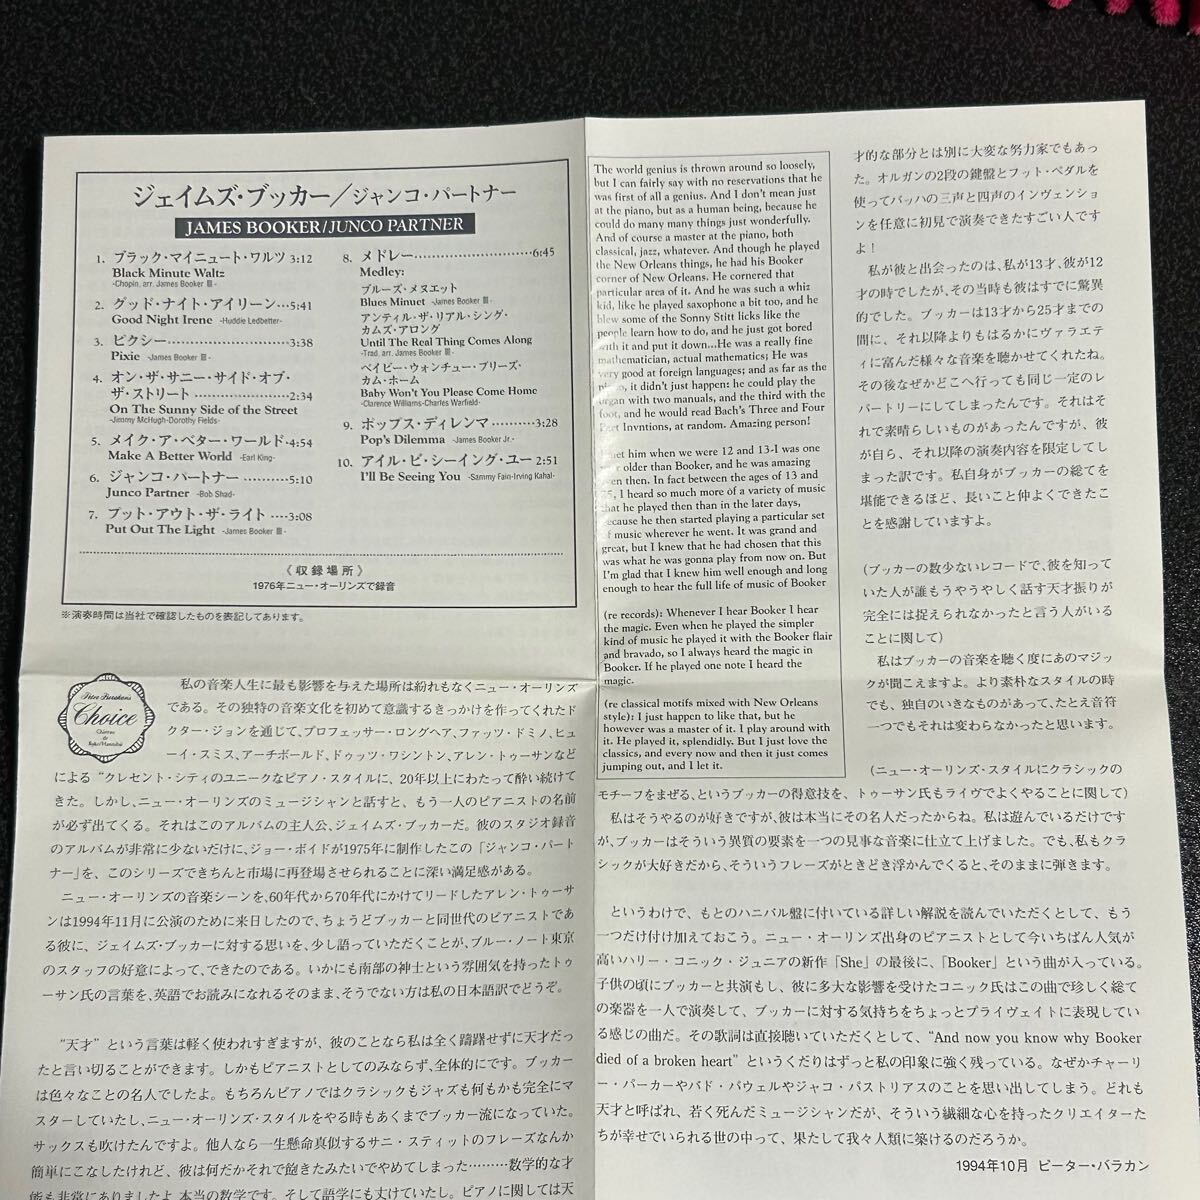 ジェイムズ・ブッカー／ジャンコ・パートナー
JAMES BOOKER/JUNCO PARTNER
1. ブラック・マイニュート・ワルツ 3:12
Black Minute Waltz
-Chopin, arr. James Booker Ⅲ-
2. グッド・ナイト・アイリーン…5:41
Good Night Irene -Huddie Ledbetter-
3. ピクシー……………………3:38
Pixie -James Booker Ⅲ-
4. オン・ザ・サニー・サイド・オブ・
ザ・ストリート………………2:34
On The Sunny Side of the Street
-Jimmy McHugh-Dorothy Fields-
5. メイク・ア・ベター・ワールド・4:54
Make A Better World -Earl King-
6. ジャンコ・パートナー …………5:10
Junco Partner -Bob Shad-
7. プット・アウト・ザ・ライト ….3:08
Put Out The Light -James Booker Ⅲ-
8. メドレー……………………6:45
Medley:
ブルーズ・メヌエット
Blues Minuet -James Booker Ⅲ-
アンティル・ザ・リアル・シング・
カムズ・アロング
Until The Real Thing Comes Along
-Trad, arr. James Booker Ⅲ-
ベイビー・ウォンチュー・プリーズ・
カム・ホーム
Baby Won't You Please Come Home
-Clarence Williams-Charles Warfield-
9. ポップス・ディレンマ …………3:28
Pop's Dilemma -James Booker Jr.-
10. アイル・ビ・シーイング・ユー 2:51
I'll Be Seeing You -Sammy Fain-Irving Kahal-
《収録場所》
1976年ニュー・オーリンズで録音
※演奏時間は当社で確認したものを表記してあります。
Choice
私の音楽人生に最も影響を与えた場所は紛れもなくニュー・オーリンズ
である。その独特の音楽文化を初めて意識するきっかけを作ってくれたド
クター・ジョンを通じて、プロフェッサー・ロングヘア、ファッツ・ドミノ、ヒュ
ーイ・スミス、アーチボールド、ドゥッツ・ワシントン、アレン・トゥーサンなど
による “クレセント・シティのユニークなピアノ・スタイルに、20年以上にわたって酔い続けて
きた。しかし、ニュー・オーリンズのミュージシャンと話すと、もう一人のピアニストの名前
が必ず出てくる。それはこのアルバムの主人公、ジェイムズ・ブッカーだ。彼のスタジオ録音
のアルバムが非常に少ないだけに、ジョー・ボイドが1975年に制作したこの「ジャンコ・パート
ナー」を、このシリーズできちんと市場に再登場させられることに深い満足感がある。
ニュー・オーリンズの音楽シーンを、60年代から70年代にかけてリードしたアレン・トゥーサ
ンは1994年11月に公演のために来日したので、ちょうどブッカーと同世代のピアニストであ
る彼に、ジェイムズ・ブッカーに対する思いを、少し語っていただくことが、ブルー・ノート東京
のスタッフの好意によって、できたのである。いかにも南部の紳士という雰囲気を持ったトゥ
ーサン氏の言葉を、英語でお読みになれるそのまま、そうでない方は私の日本語訳でどうぞ。
“天才” という言葉は軽く使われすぎますが、彼のことなら私は全く躊躇せずに天才だっ
たと言い切ることができます。しかもピアニストとしてのみならず、全体的にです。ブッカー
は色々なことの名人でしたよ。もちろんピアノではクラシックもジャズも何もかも完全にマ
スターしていたし、ニュー・オーリンズ・スタイルをやる時もあくまでブッカー流になっていた。
サックスも吹けたんですよ。他人なら一生懸命真似するサニ・スティットのフレーズなんか
簡単にこなしたけれど、彼は何だかそれで飽きたみたいでやめてしまった………数学的な才
能も非常にありましたよ、本当の数学です。そして語学にも丈けていたし。ピアノに関しては天
The world genius is thrown around so loosely,
but I can fairly say with no reservations that he
was first of all a genius. And I don't mean just
at the piano, but as a human being, because he
could do many many things just wonderfully.
And of course a master at the piano, both
classical, jazz, whatever. And though he played
the New Orleans things, he had his Booker
corner of New Orleans. He cornered that
particular area of it. And he was such a whiz
kid, like he played saxophone a bit too, and he
blew some of the Sonny Stitt licks like the
people learn how to do, and he just got bored
with it and put it down...He was a really fine
mathematician, actual mathematics; He was
very good at foreign languages; and as far as the
piano, it didn't just happen: he could play the
organ with two manuals, and the third with the
foot, and he would read Bach's Three and Four
Part Invntions, at random. Amazing person!
met him when we were 12 and 13-I was one
older than Booker, and he was amazing
then. In fact between the ages of 13 and
25, I heard so much more of a variety of music
that he played then than in the later days,
because he then started playing a particular set
of music wherever he went. It was grand and
great, but I knew that he had chosen that this
was what he was gonna play from now on. But
I'm glad that I knew him well enough and long
enough to hear the full life of music of Booker
(re records): Whenever I hear Booker I hear
the magic. Even when he played the simpler
kind of music he played it with the Booker flair
and bravado, so I always heard the magic in
Booker. If he played one note I heard the
magic.
(re classical motifs mixed with New Orleans
style): I just happen to like that, but he
however was a master of it. I play around with
it. He played it, splendidly. But I just love the
classics, and every now and then it just comes
jumping out, and I let it.
才的な部分とは別に大変な努力家でもあっ
た。オルガンの2段の鍵盤とフット・ペダルを
使ってバッハの三声と四声のインヴェンショ
ンを任意に初見で演奏できたすごい人です
よ！
私が彼と出会ったのは、私が13才、彼が12
才の時でしたが、その当時も彼はすでに驚異
的でした。ブッカーは13才から25才までの
間に、それ以降よりもはるかにヴァラエテ
ィに富んだ様々な音楽を聴かせてくれたね。
その後なぜかどこへ行っても同じ一定のレ
パートリーにしてしまったんです。それはそ
れで素晴らしいものがあったんですが、彼
が自ら、それ以降の演奏内容を限定してし
まった訳です。私自身がブッカーの総てを
堪能できるほど、長いこと仲よくできたこ
とを感謝していますよ。
(ブッカーの数少ないレコードで、彼を知って
いた人が誰もうやうやしく話す天才振りが
完全には捉えられなかったと言う人がいる
ことに関して)
私はブッカーの音楽を聴く度にあのマジッ
クが聞こえますよ。より素朴なスタイルの時
でも、独自のいきなものがあって、たとえ音符
一つでもそれは変わらなかったと思います。
(ニュー・オーリンズ・スタイルにクラシックの
モチーフをまぜる、というブッカーの得意技を、トゥーサン氏もライヴでよくやることに関して)
私はそうやるのが好きですが、彼は本当にその名人だったからね。私は遊んでいるだけです
が、ブッカーはそういう異質の要素を一つの見事な音楽に仕立て上げました。でも、私もクラ
シックが大好きだから、そういうフレーズがときどき浮かんでくると、そのままに弾きます。
というわけで、もとのハニバル盤に付いている詳しい解説を読んでいただくとして、もう
一つだけ付け加えておこう。ニュー・オーリンズ出身のピアニストとして今いちばん人気が
高いハリー・コニック・ジュニアの新作「She」の最後に、「Booker」という曲が入っている。
子供の頃にブッカーと共演もし、彼に多大な影響を受けたコニック氏はこの曲で珍しく総て
の楽器を一人で演奏して、ブッカーに対する気持ちをちょっとプライヴェイトに表現してい
る感じの曲だ。その歌詞は直接聴いていただくとして、“And now you know why Booker
died of a broken heart” というくだりはずっと私の印象に強く残っている。なぜかチャーリ
ー・パーカーやバド・パウェルやジャコ・パストリアスのことを思い出してしまう。どれも
天才と呼ばれ、若く死んだミュージシャンだが、そういう繊細な心を持ったクリエイターた
ちが幸せでいられる世の中って、果たして我々人類に築けるのだろうか。
1994年10月 ピーター・バラカン